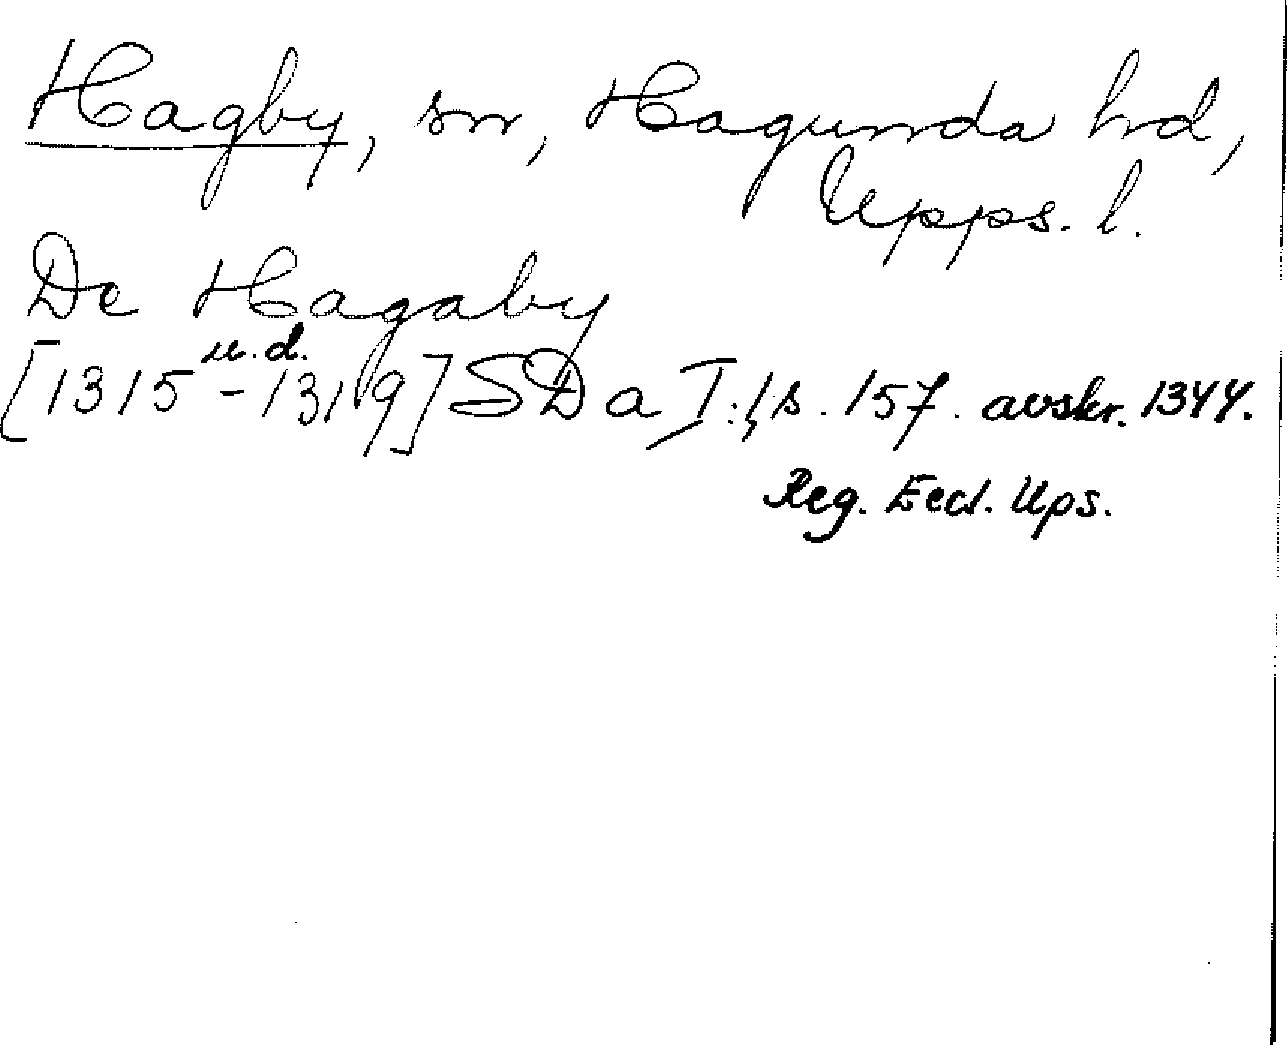 Hagby, sn, Hagunda hd,
Upps. l.
De Hagaby
u.d.
[1315 - 1319] SD a I:1, s. 157. avskr. 1344.
Reg. Eccl. Ups.